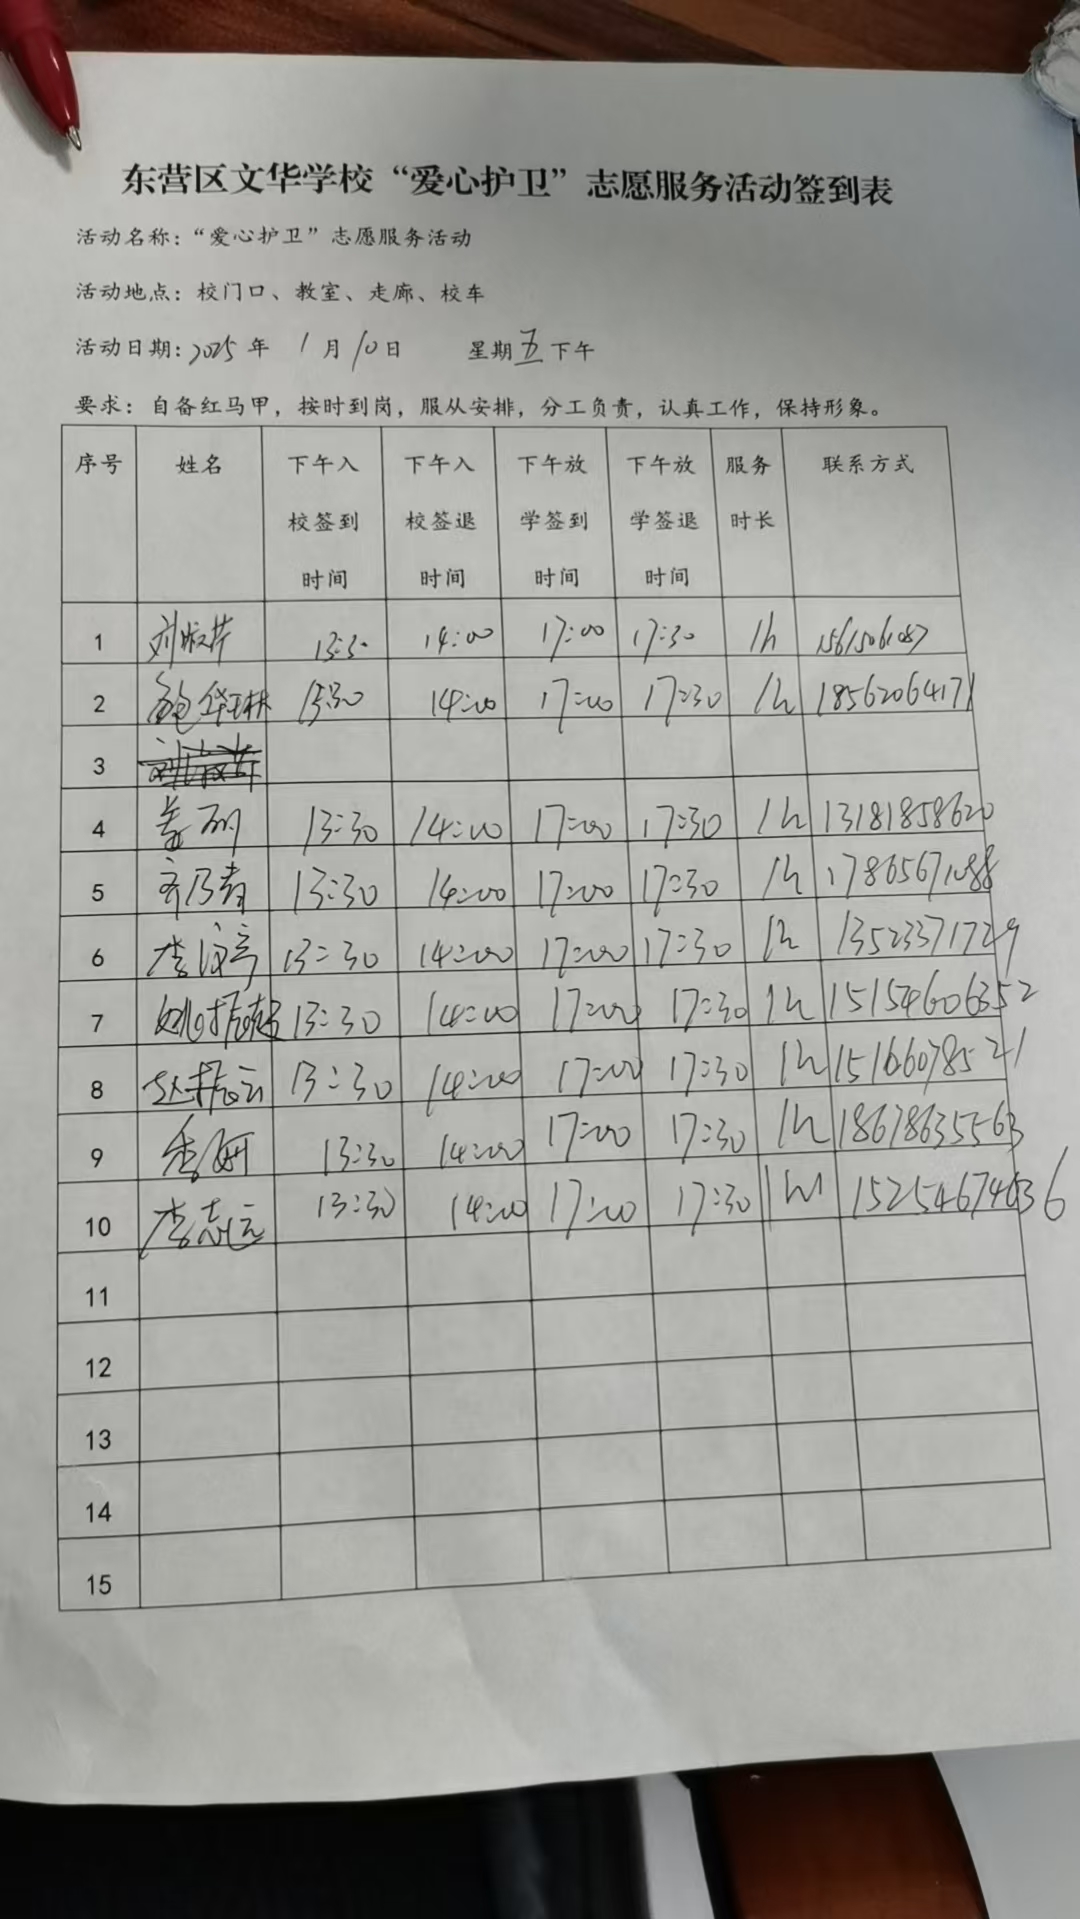 东营区文华学校“爱心护卫”志愿服务活动签到表
活动名称：“爱心护卫”志愿服务活动
活动地点：校门口、教室、走廊、校车
活动日期：2025年 1月10日 星期五下午
要求：自备红马甲，按时到岗，服从安排，分工负责，认真工作，保持形象。
序号 姓名 下午入校签到时间 下午入校签退时间 下午放学签到时间 下午放学签退时间 服务时长 联系方式
1 13:30 14:00 17:00 17:30 1h
2 鲍华琳 13:30 14:00 17:00 17:30 1h 18562064171
3
4 姜丽 13:30 14:00 17:00 17:30 1h 13181858620
5 齐乃春 13:30 14:00 17:00 17:30 1h 17865671088
6 李海亭 13:30 14:00 17:00 17:30 1h 13523371729
7 姚振超 13:30 14:00 17:00 17:30 1h 15154606352
8 赵振云 13:30 14:00 17:00 17:30 1h 15166078521
9 季妍 13:30 14:00 17:00 17:30 1h 18678635563
10 李志远 13:30 14:00 17:00 17:30 1h 15254674636
11
12
13
14
15